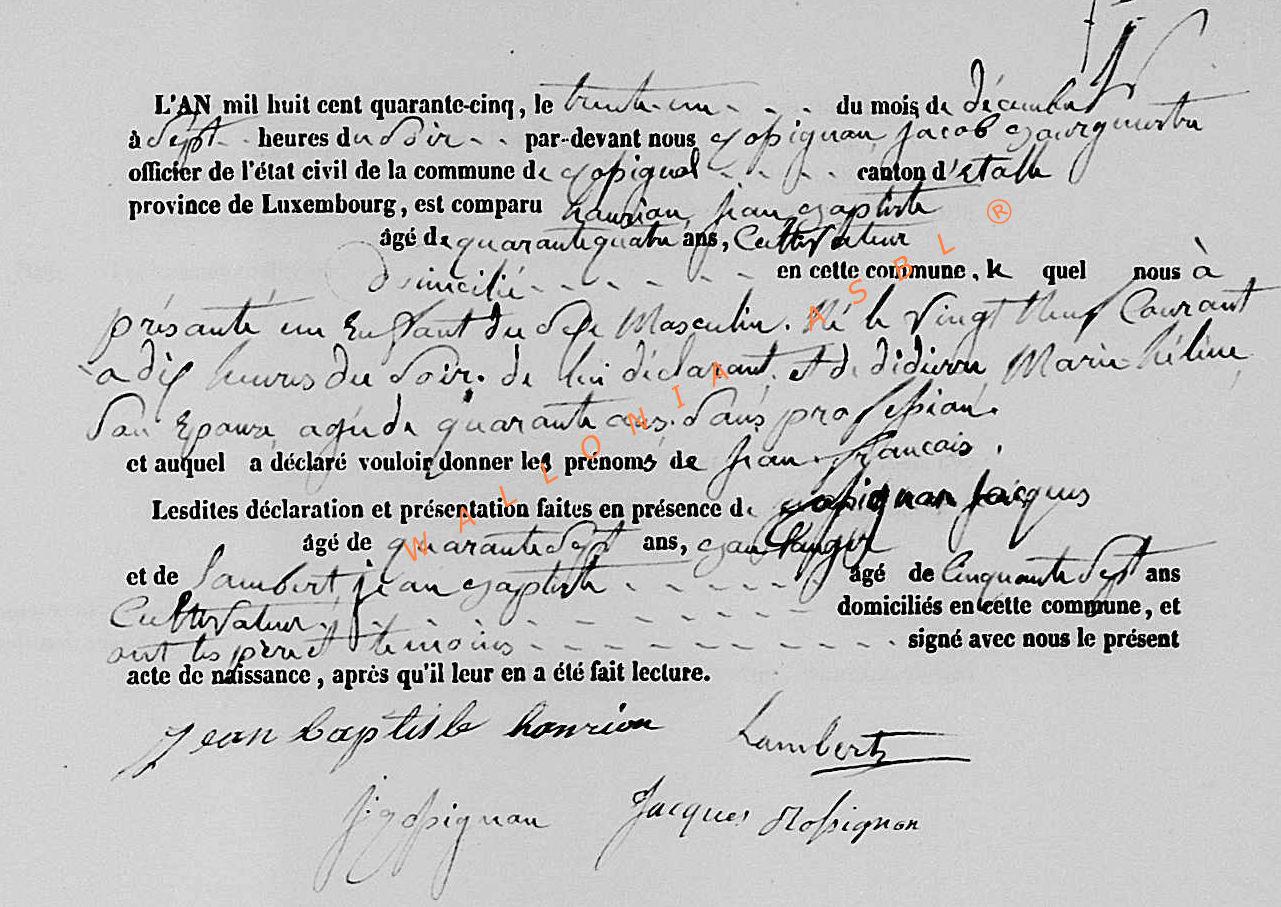 L'AN mil huit cent quarante-cinq, le trente-un - - - du mois de décembre
à Sept - - heures du Soir - - par-devant nous Rossignon, Jacob Bourgmestre
officier de l'état civil de la commune de Rossignol - - - - canton d'Etalle
province de Luxembourg, est comparu hanrion, jean Baptiste
âgé de quarante quatre ans, Cultivateur
domicilié - - - - - - en cette commune, le quel nous à
présanté un Enfant du Sexe Masculin. Né le Vingt Neuf Courant
a dix heures du Soir. de lui déclarant, et de didierre, Marie-hélène,
Son Epouse, agée de quarante ans. Sans profession.
et auquel a déclaré vouloir donner les prénoms de Jean-francais.
Lesdites déclaration et présentation faites en présence de Rossignon Jacques
âgé de quarante Sept ans,
et de Lambert, jean Baptiste - - - - - - âgé de Cinquante Sept ans
Cultivateur. - - - - - - - - - domiciliés en cette commune, et
ont les père et temoins - - - - - - - - - - signé avec nous le présent
acte de naissance, après qu'il leur en a été fait lecture.
Jean baptiste hanrion Lambert
J. Rossignon Jacques Rossignon
WALLONIA ASBL ®